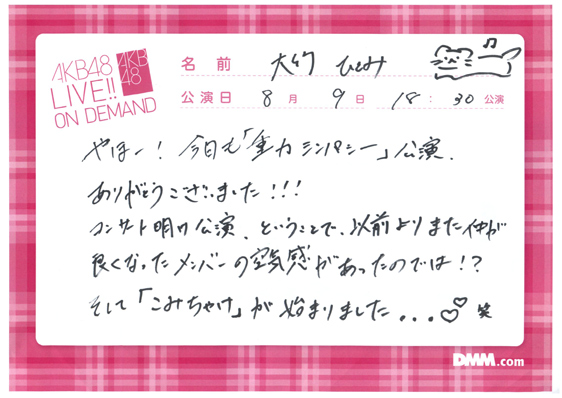 AKB48
LIVE!!
ON DEMAND
AKB
48
名前 大竹 ひとみ
公演日 8月 9日 18:30公演
やほー！今日も「全力シンパシー」公演、
ありがとうございました！！！
コンサート明け公演、ということで、以前よりまた仲が
良くなったメンバーの空気感があったのでは！？
そして「こみちゃけ」が始まりました...♡♡ 笑
DMM.com